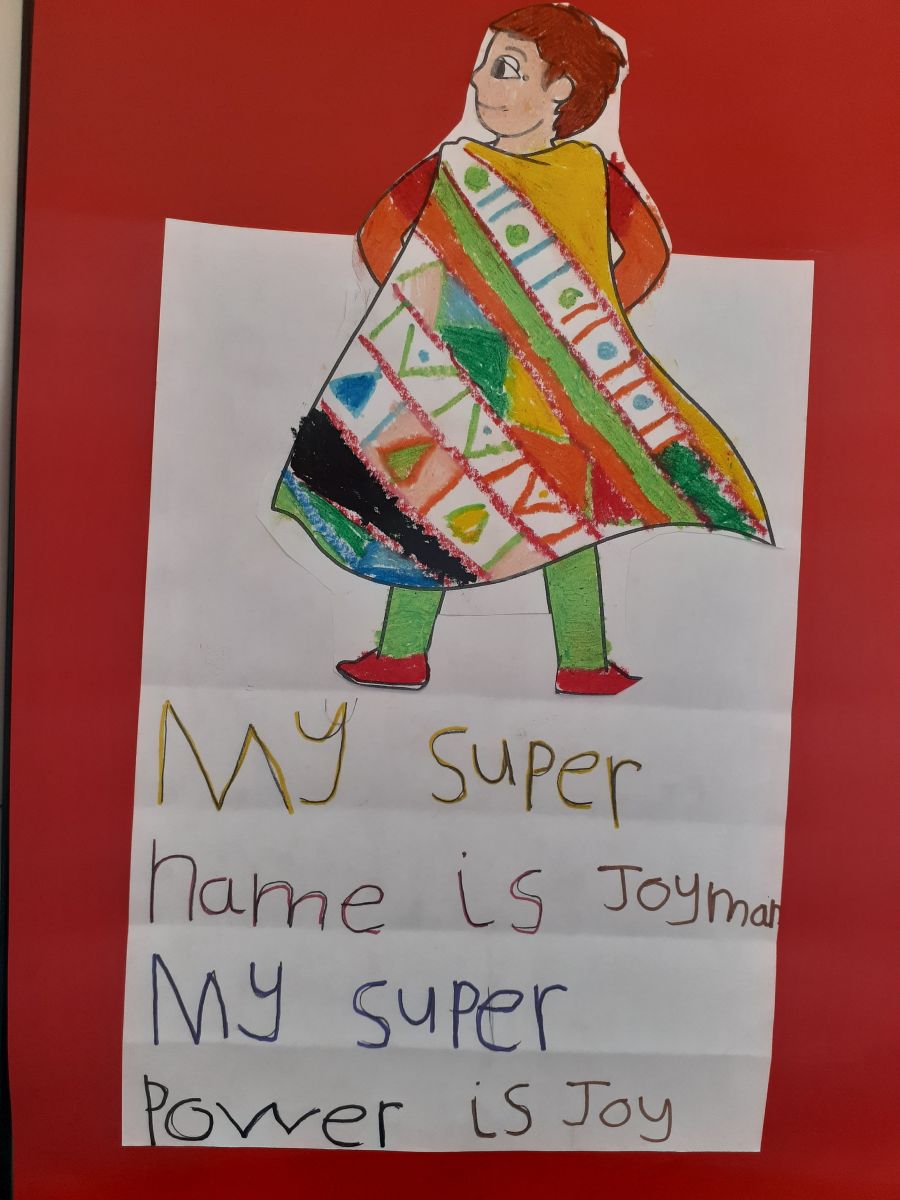 My super
name is Joyman
My super
Power is Joy